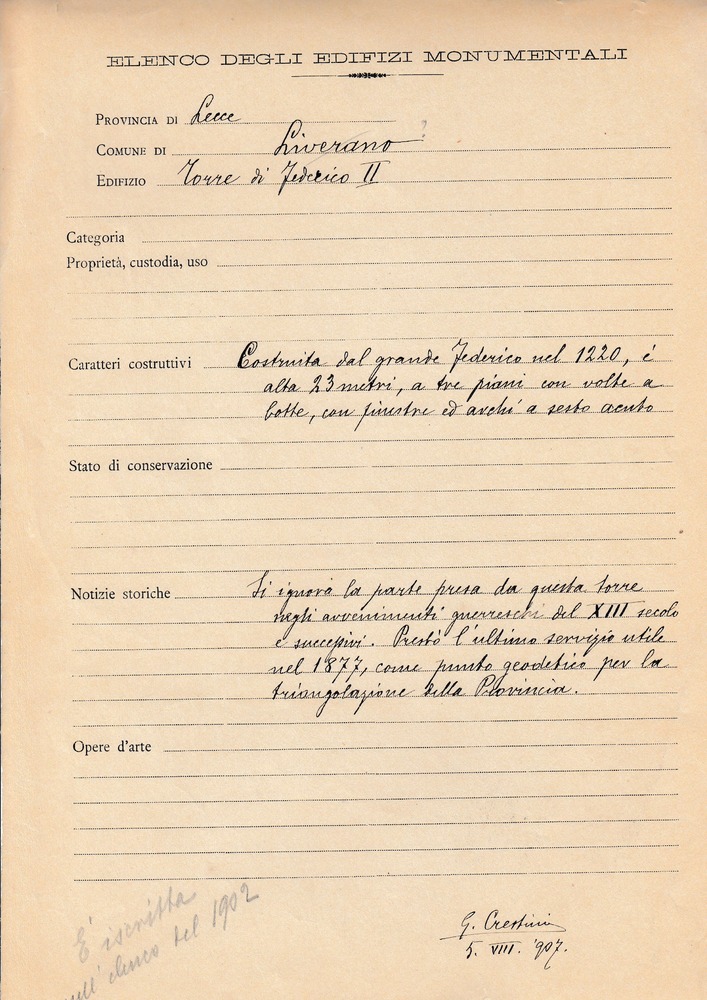 ELENCO DEGLI EDIFIZI MONUMENTALI
PROVINCIA DI Lecce
COMUNE DI Liverano ?
EDIFIZIO Torre di Federico II
Categoria
Proprietà, custodia, uso
Caratteri costruttivi Costruita dal grande Federico nel 1220, é
alta 23 metri, a tre piani con volte a
botte, con finestre ed archi a sesto acuto
Stato di conservazione
Notizie storiche Si ignora la parte presa da questa torre
negli avvenimenti guerreschi del XIII secolo
e successivi. Prestò l'ultimo servizio utile
nel 1877, come punto geodetico per la
triangolazione della Provincia.
Opere d'arte
G. Crestini
5. VIII. '907.
E' iscritta
nell'elenco del 1902